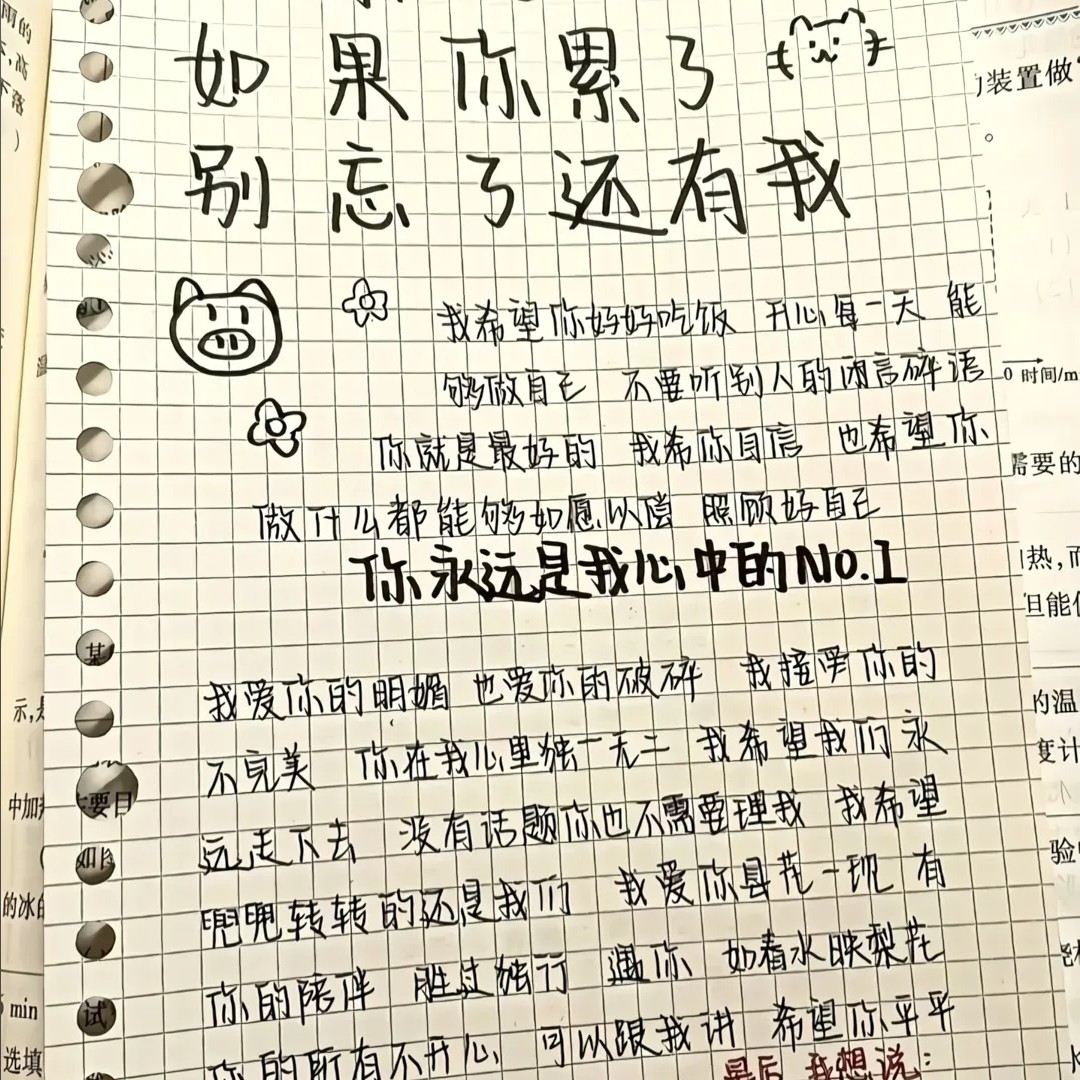 如果你累了
别忘了还有我
我希望你好好吃饭 开心每一天 能
够做自己 不要听别人的闲言碎语
你就是最好的 我希你自信 也希望你
做什么都能够如愿以偿 照顾好自己
你永远是我心中的No.1
我爱你的明媚 也爱你的破碎 我接受你的
不完美 你在我心里独一无二 我希望我们永
远走下去 没有话题你也不需要理我 我希望
兜兜转转的还是我们 我爱你昙花一现 有
你的陪伴 胜过独行 遇你 如春水映梨花
你的所有不开心 可以跟我讲 希望你平平
最后 我想说:
雨的
下,高
下落
)
示,是
中加热
的冰的
5 min
选填
某
主要目
如图
试
的装置做
。
0 时间/m
需要的
的温
度计
验
热,而
但能